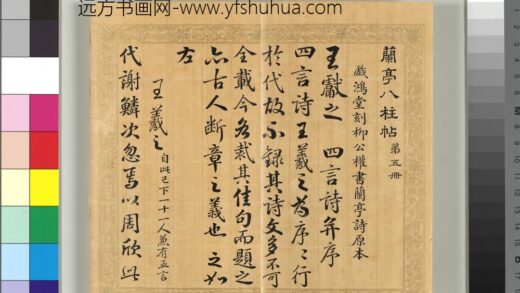 远方书画网-www.yfshuhua.com
蘭亭八柱帖 第五冊
戲鴻堂刻柳公權書蘭亭詩原本
王獻之 四言詩并序
四言詩王羲之為序序行
於代故不錄其詩文多不可
全載今各裁其佳句而題之
亦古人斷章之義也 之如
右
王羲之 自此已下一十一人兼有五言
代謝鱗次忽焉以周欣此